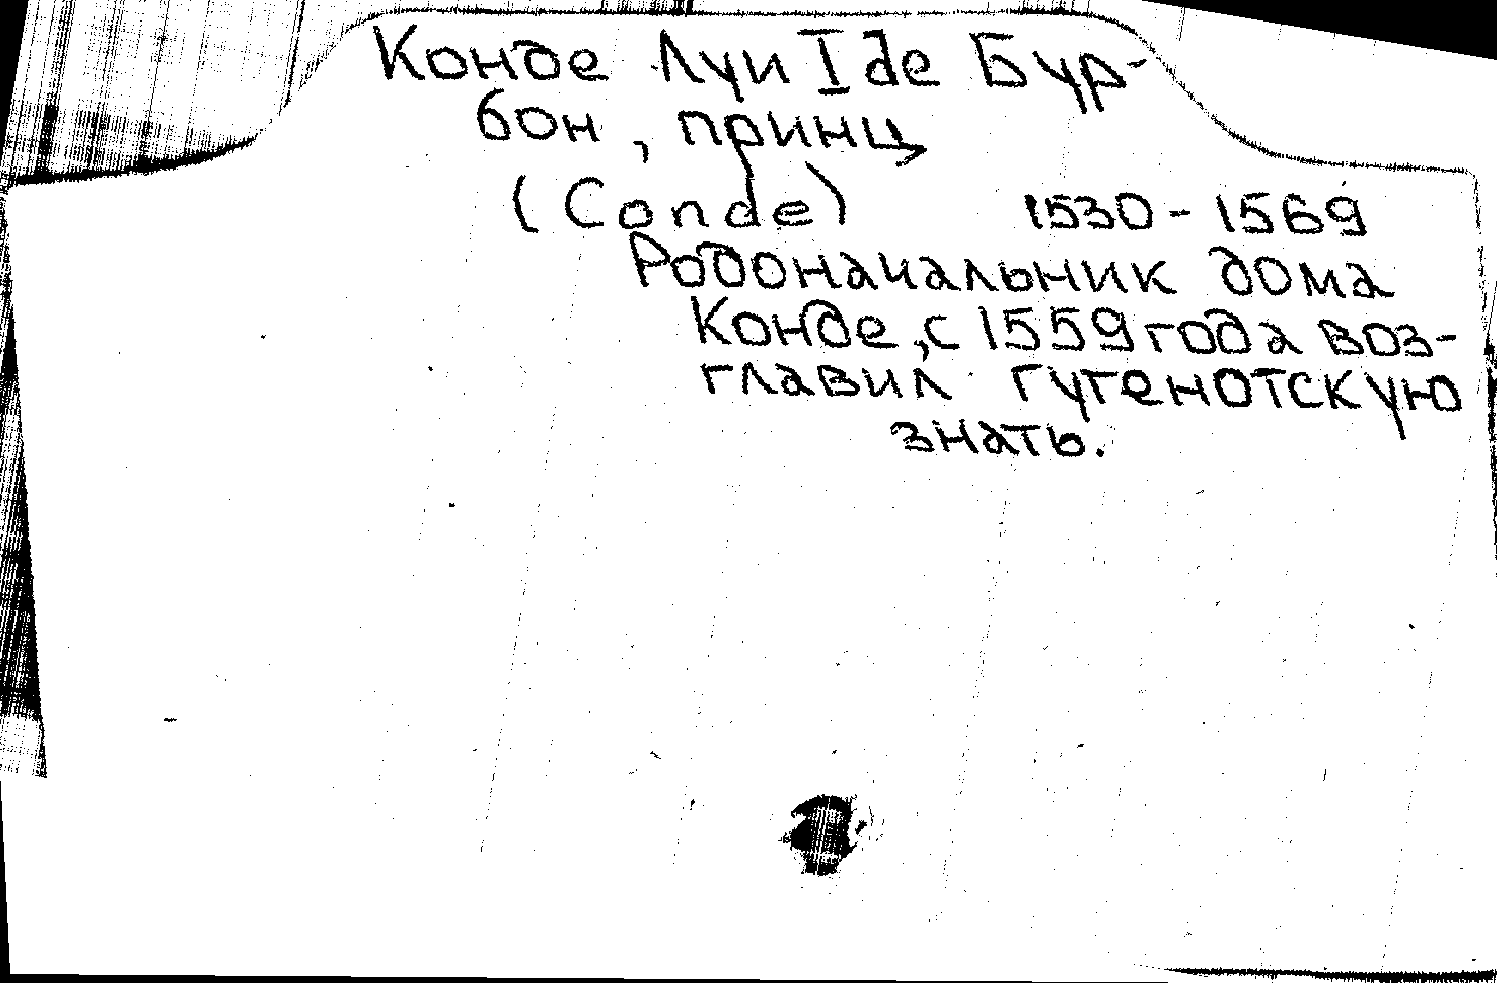 Конде Луи I де Бур-
бон, принц
(Conde) 1530-1569
Родоначальник дома
Конде, с 1559 года воз-
главил гугенотскую
знать.